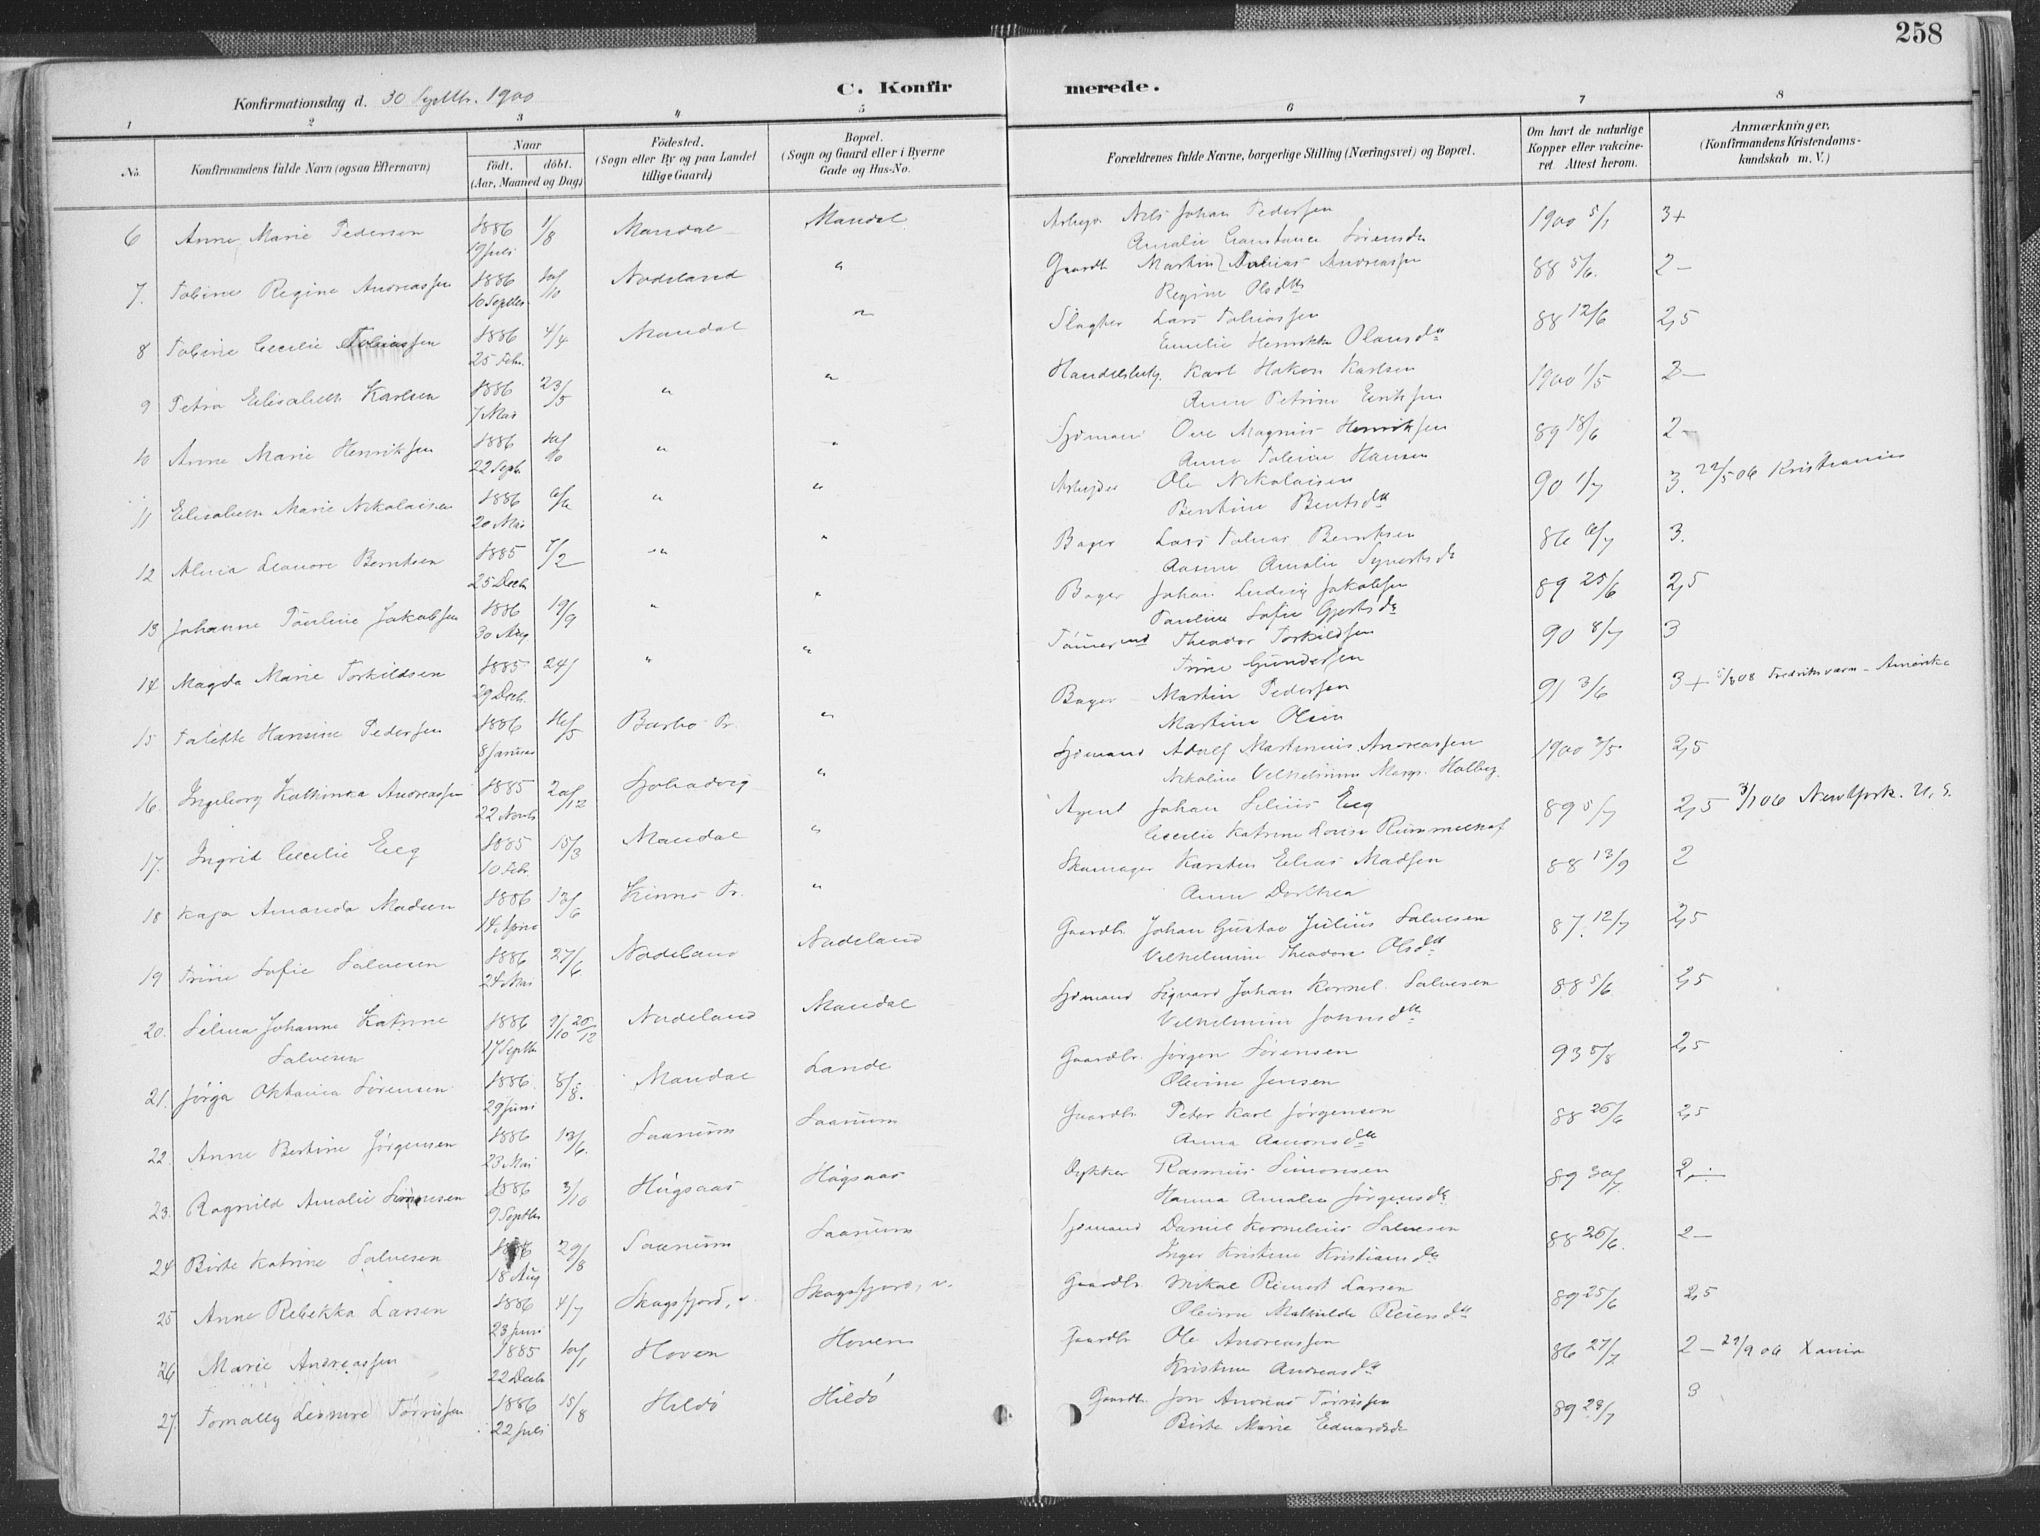 258
Konfirmationsdag d. 30 Septbr. 1900
C. Konfirmerede.
1 2 3 4 5 6 7 8
No.
Konfirmandens fulde Navn (ogsaa Efternavn)
Naar
født. døbt.
(Aar, Maaned og Dag)
Fødested.
(Sogn eller By og paa Landet
tillige Gaard)
Bopæl.
(Sogn og Gaard eller i Byerne
Gade og Hus-No.
Forældrenes fulde Navne, borgerlige Stilling (Næringsvei) og Bopæl.
Om havt de naturlige
Kopper eller vakcine-
ret. Attest herom.
Anmærkninger.
(Konfirmandens Kristendoms-
kundskab m. V.)
6 Anne Marie Pedersen 1886 1/8 Mandal Mandal Nils Johan Pedersen 1900 5/1 3+
19 Juli Amalie Constance Sørensdr
7. Tobine Regine Andreassen 1886 10/10 Nodeland " Gaardb. Martin Tobias Andreassen 88 5/6. 2-
10 Septbr. Regine Olsdtr
8 Tobine Cecilie Tobiassen 1886 4/4 Mandal " Slagter Lars Tobiassen 88 12/6 2,5
25 Febr. Emilie Henrikke Olausdtr
9 Petra Elisabeth Karlsen 1886 23/5 " " Karl Hakon Karlsen 1900 1/5 2-
7 Mai Anne Petrine Eriksen
10 Anne Marie Henriksen 1886 10/10 " " Sjømand Ove Magnus Henriksen 89 18/6 2-
22 Septb. Anne Tobine Hansen
11 Elisabeth Marie Nikolaisen 1886 6/6 " " Arbejder Ole Nikolaisen 90 1/7 3. 22/5 06 Kristiania
20 Mai Bentine Bentsdtr
12 Leonore Berntsen 1885 7/2 " " Bager Lars Tobias Berntsen 86 6/7 3.
25 Decbr. Amalie Syvertsdr
13 Johanne Pauline Jakobsen 1886 19/9 " " Bager Johan Ludvig Jakobsen 89 25/6 2,5
30 Aug. Pauline Sofie Gjertsdr
14 Magda Marie Torkildsen 1885 24/ " " Tømermd Theodor Torkildsen 90 8/7 3
29 Decb. Trine Gundersen
15 Talette Hansine Pedersen 1886 16/5 Barbo Pr. " Bager Martin Pedersen 91 3/6 3+ 5/8 08 Fredriksværn - Amerika
8 Januar Martine Olsen
16. Ingeborg Kathinka Andreassen 1885 20/12 " Sjømand Adolf Martinius Andreassen 1900 3/5 2,5
22 Novb. Nikoline Vilhelmine Marg. Holby.
17. Ingrid Cecilie Eeg 1885 15/3 Mandal " Agent Johan Eeg 89 5/7 2,5 3/1 06 New York. U. S.
10 Febr. Cecilie Katrine Louise Rummelhof
18 Kaja Amanda Madsen 1886 13/6 Kinns Pr. " Skomager Karsten Elias Madsen 88 13/9 2
14. April Anne Dorthea
19 Trine Sofie Salvesen 1886 27/6 Nodeland Nodeland Gaardb. Johan Gustav Julius Salvesen 87. 12/7 2,5
24 Mai Vilhelmine Theodora Olsdtr
20. Selma Johanne Katrine 1886 9/10 20/12 Nodeland Mandal Sjømand Sigvard Johan Kornel. Salvesen 88 5/6. 2,5
Salvesen 17 Septbr Vilhelmine Johnsdtr
21. Jørga Oktavia Sørensen 1886. 8/8. Mandal Lande Gaardbr. Jørgen Sørensen 93 5/8 2,5
29 Juni Olevine Jensen
22. Anne Bertine Jørgensen 1886 13/6. Saanum Saanum Gaardbr Peter Karl Jørgensen 88 26/6 2,5
23 Mai Anna Aanonsdtr
23. Ragnild Amalie Simonsen 1886 3/10 Høgsaas Høgsaas Dykker Rasmus Simonsen 89 30/7. 2,-
9 Septbr Hanna Amalie Jørgensdr
24 Birte Katrine Salvesen 1886 29/8 Saanum Saanum Sjømand Daniel Kornelius Salvesen 88 26/6. 2-
18 Aug Inger Kristine Kristiansdr
25 Anne Rebekka Larsen 1886 4/7 Skogsfjord, v. Skogsfjord, v. Gaardbr. Mikal Reinert Larsen 89 25/6 2,5
23 Juni Olevine Mathilde Reiersdtr
26 Marie Andreassen 1885 10/1 Hoven Hoven Gaardbr Ole Andreassen 86 27/7 2- 29/9 06 Xania
22 Decb. Kristine Andreasdtr
27. Tomally Leonore Tørrissen 1886 15/8 Hildø Hildø Gaardb. Jon Andreas Tørrissen 89 28/7 3
22 Juli Birte Marie Edvardsdr